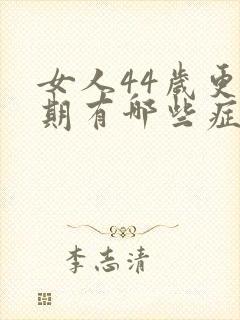 女人44岁更
期有哪些症
李志清